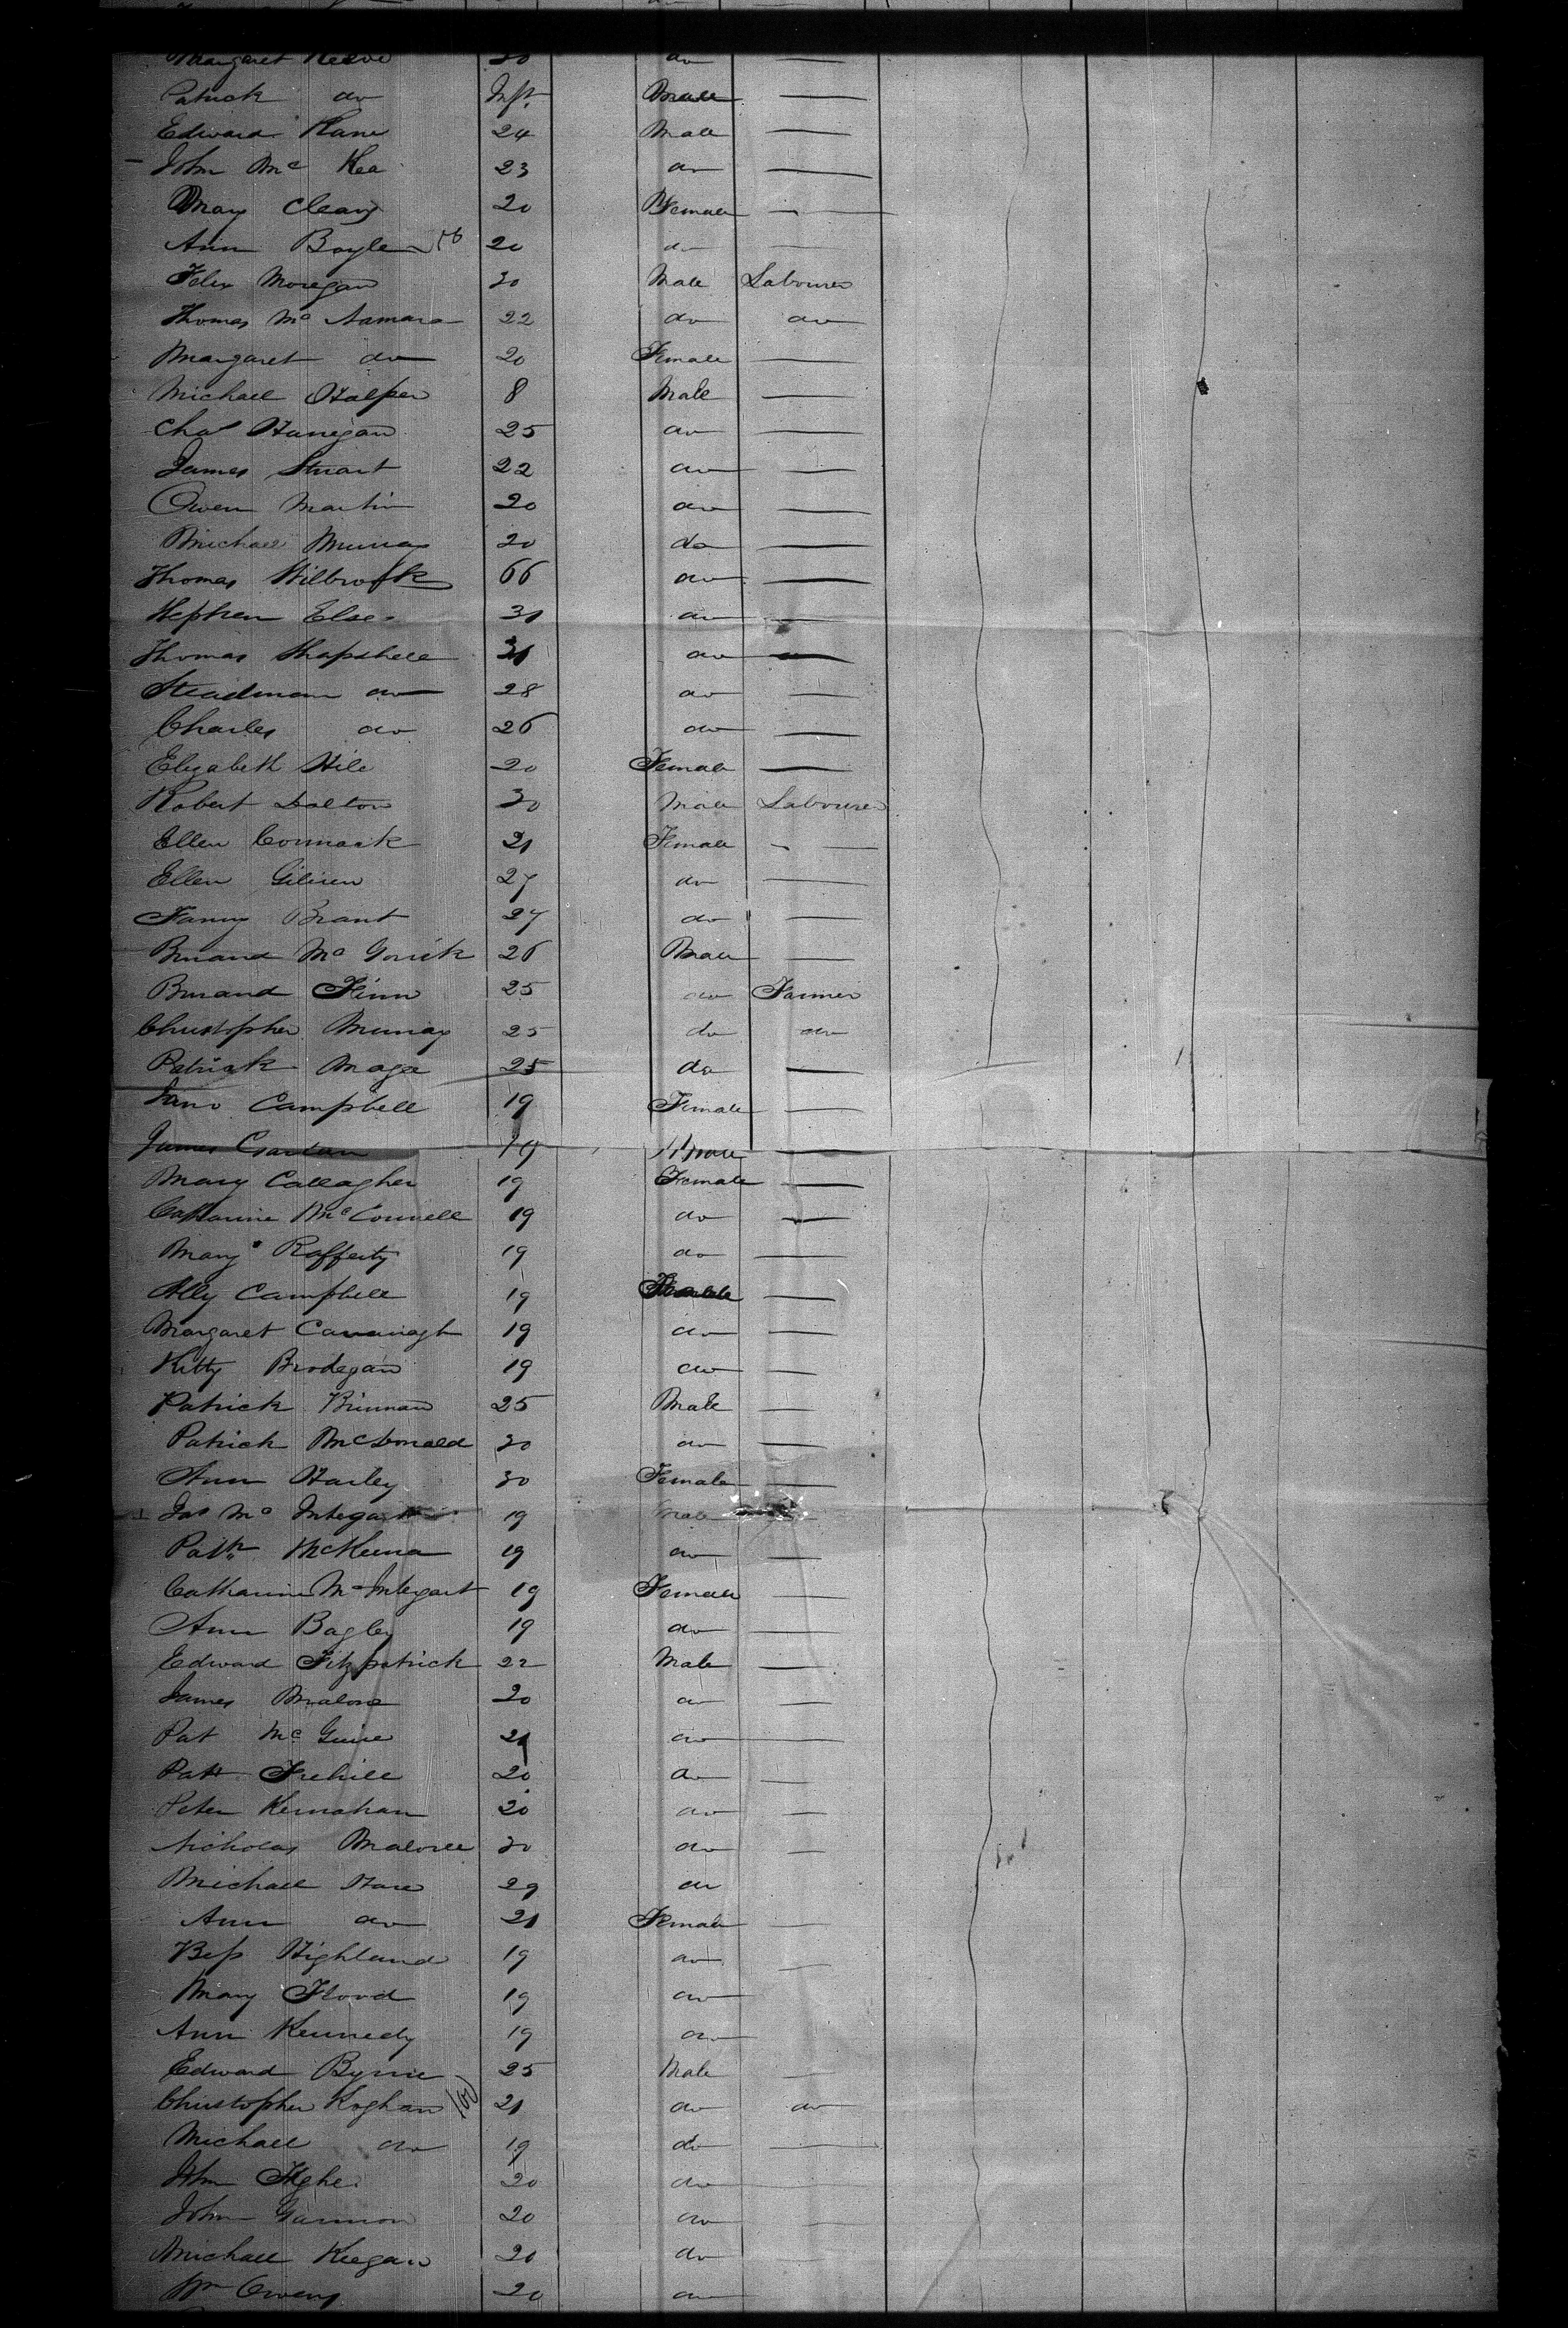 Margaret 30 do
Patrick do Inft. Male
Edward Kane 24 Male
John Mc Kea 23 do
Mary Cleary 20 Female
Ann Boyle 20 do
Felix Moregan 30 Male Labourer
Thomas Mc Namara 22 do do
Margaret do 20 Female
Michael Halpen 8 Male
Chas Hanegan 25 do
James Stuart 22 do
Owen Martin 20 do
Michael Murray 20 do
Thomas 66 do
Stephen Else 31 do
Thomas Shapshell 31 do
Steadman do 28 do
Charles do 26 do
Elizabeth Hill 20 Female
Robert Dalton 30 Male Labourer
Ellen Cormack 21 Female
Ellen 27 do
Fanny Brant 27 do
Mc 26 Male
Finn 25 do Farmer
Christopher Murray 25 do do
Patrick Mage 25 do
Jane Campbell 19 Female
James 19 Male
Mary Callagher 19 Female
Catharine McConnell 19 do
Mary Rafferty 19 do
Ally Campbell 19 Female
Margaret Cavanagh 19 do
Kitty Brodegan 19 do
Patrick Brinnan 25 Male
Patrick McDonald 30 do
Ann Harley 30 Female
Jas Mc Integart 19 Male
Patk McKenna 19 do
Catharine McIntegart 19 Female
Ann Bagley 19 do
Edward Fitzpatrick 22 Male
James Malone 20 do
Pat McGuire 21 do
Patk Frehill 20 do
Peter Kernahan 20 do
Nicholas 30 do
Michael Hare 29 do
Ann do 21 Female
Bess Highland 19 do
Mary Flood 19 do
Ann Kennedy 19 do
Edward Byrne 25 Male
Christopher Koghan 100 21 do do
Michael do 19 do
John 20 do
John Gannon 20 do
Michael Keegan 20 do
Wm Owens 20 do